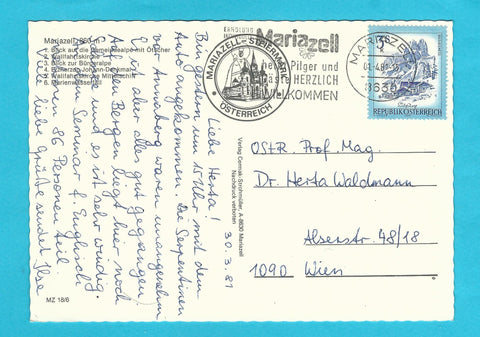 Mariazell, 860 m
1. Blick auf die Gemeindealpe mit Ötscher
2. Wallfahrtskirche
3. Blick zur Bürgeralpe
4. Erzherzog-Johann-Denkmal
5. Wallfahrtskirche, Mittelschiff
6. Marienwasserfall
Liebe Herta!
Bin gestern um 15 Uhr mit dem
Auto angekommen. Die Serpentinen
vor Annaberg waren unangenehm
(ist aber alles gut gegangen).
Auf den Bergen liegt hier noch
Schnee und es ist sehr windig.
Am Seminar f. Englisch
nehmen 86 Personen teil.
Viele liebe Grüße sendet Ilse
30.3.81
MZ 18/6
Verlag Cermak-Strohmüller, A-8630 Mariazell
Nachdruck verboten
MARIAZELL - STEIERMARK
ÖSTERREICH
Mariazell
heißt Pilger und
Gäste HERZLICH
WILLKOMMEN
MARIAZELL
8630
3 S
REPUBLIK ÖSTERREICH
OStR. Prof. Mag.
Dr. Herta Waldmann
Alserstr. 48/18
1090 Wien